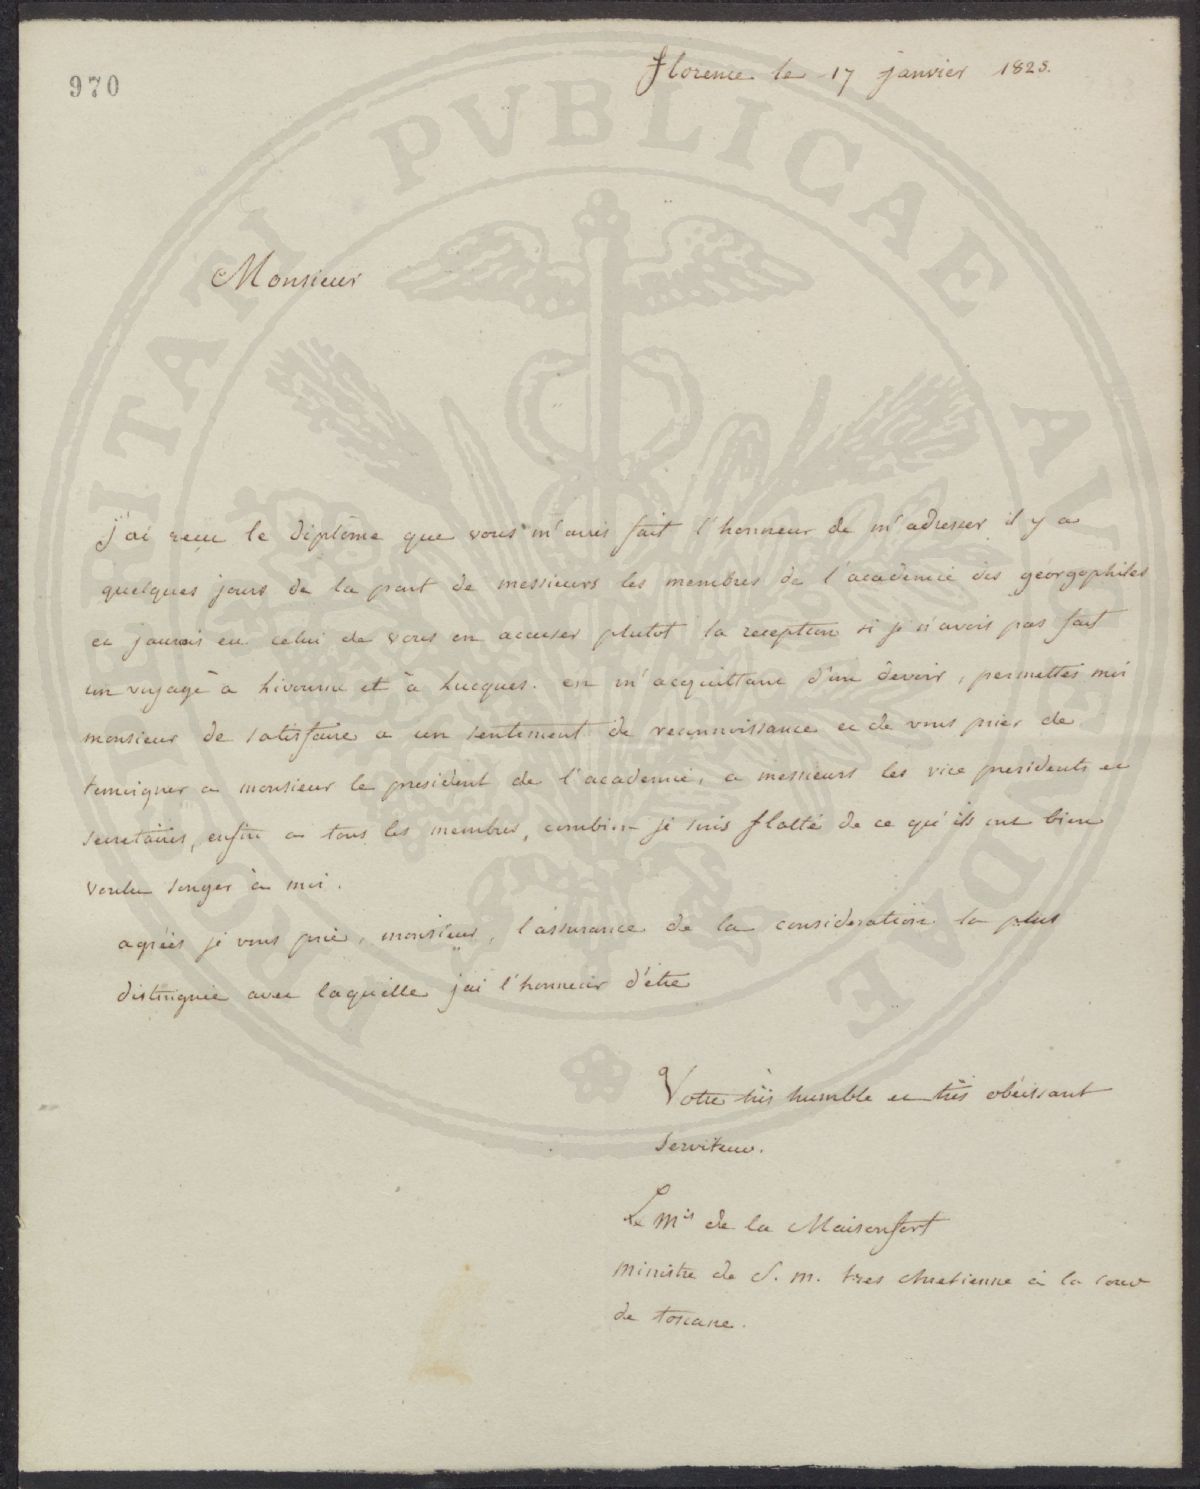 970
florence le 17 janvier 1825.
Monsieur
j'ai reçu le diplôme que vous m'avés fait l'honneur de m'adresser il y a
quelques jours de la part de messieurs les membres de l'academie des georgophiles
et jaurois eu celui de vous en accuser plutot la reception si je n'avois pas fait
un voyage a Livourne et à Lucques. en m'acquittant d'un devoir, permettés moi
monsieur de satisfaire a un sentiment de reconnoissance et de vous prier de
temoigner a monsieur le president de l'academie, a messieurs les vice presidents et
secretaires, enfin a tous les membres, combien je suis flatté de ce qu'ils ont bien
voulu songer à moi.
agréés je vous prie, monsieur, l'assurance de la consideration la plus
distinguée avec laquelle j'ai l'honneur d'être
Votre très humble et très obéissant
Serviteur.
Le Mis de la Maisonfort
ministre de S. M. tres chretienne à la cour
de toscane.
PROSPERITATI PVBLICAE AVGENDAE